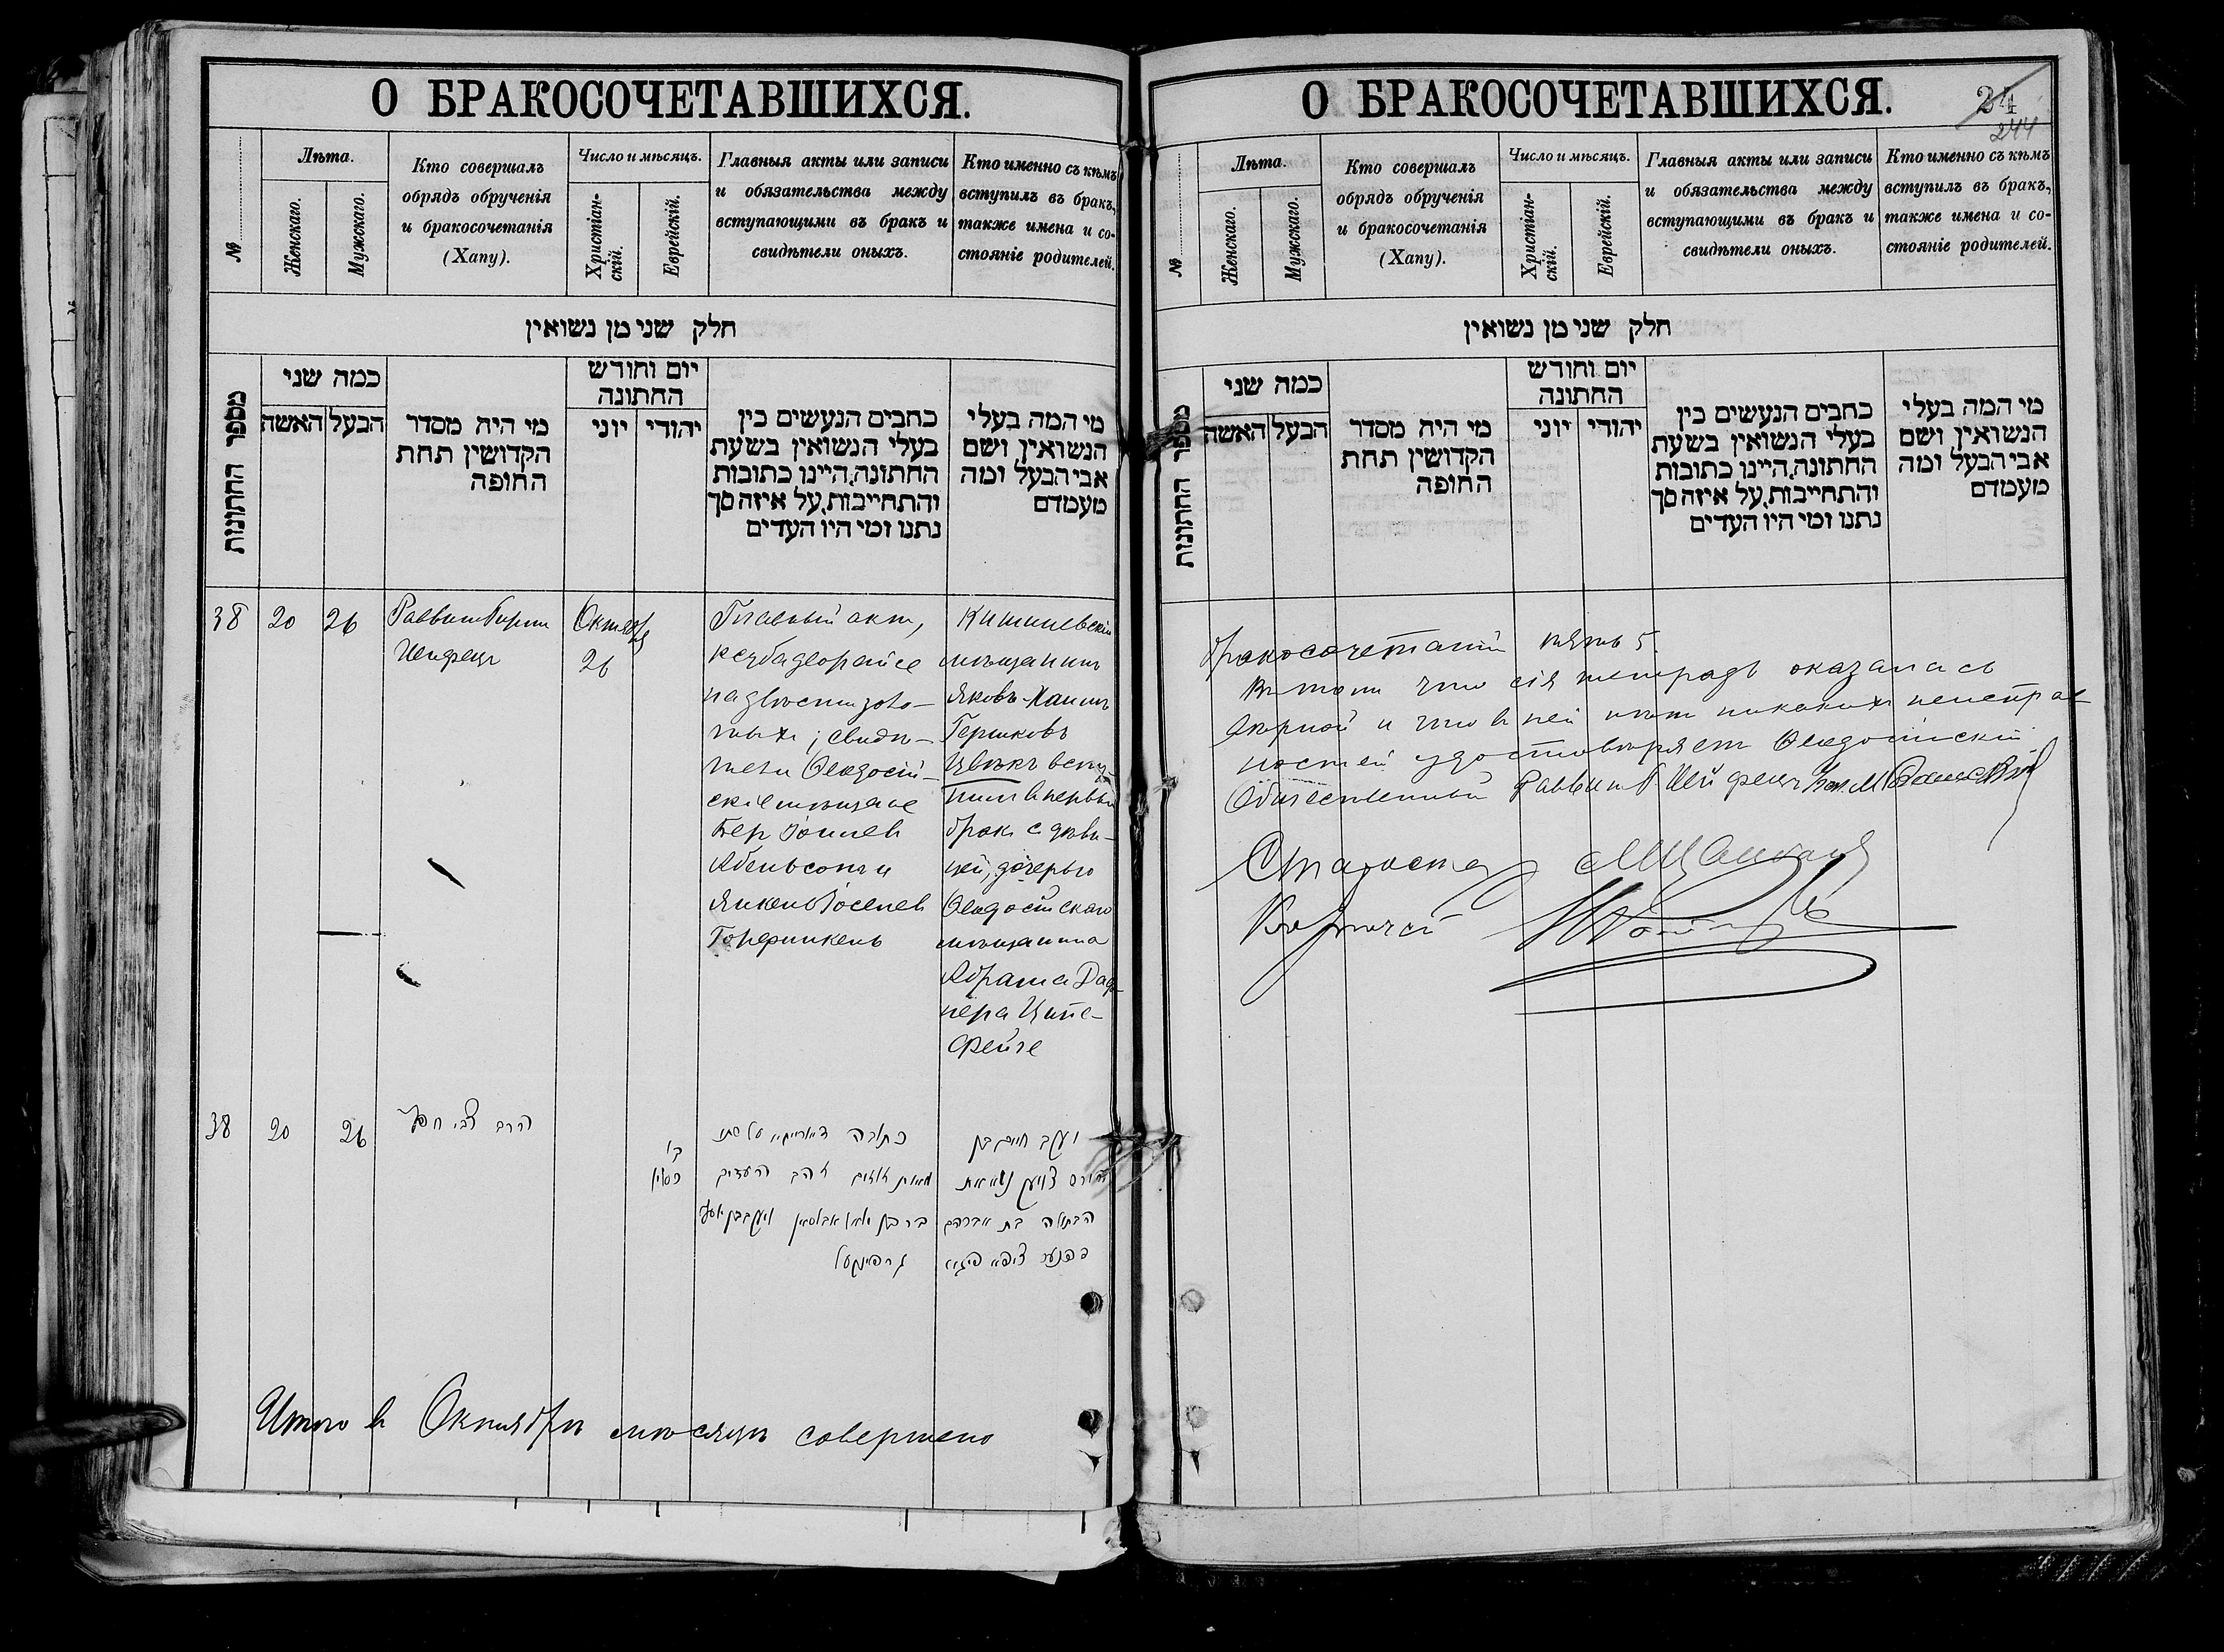 О БРАКОСОЧЕТАВШИХСЯ.
№
Лѣта.
Женскаго.
Мужскаго.
Кто совершалъ
обрядъ обрученія
и бракосочетанія
(Хапу).
Число и мѣсяцъ.
Христіан-
скій.
Еврейскій.
Главныя акты или записи
и обязательства между
вступающими въ бракъ и
свидѣтели оныхъ.
Кто именно съ кѣмъ
вступилъ въ бракъ,
также имена и со-
стояніе родителей.
חלק שני מן נשואין
מספר החתונות
כמה שני
האשה
הבעל
מי היה מסדר
הקדושין תחת
החופה
יום וחודש
החתונה
יוני
יהודי
כתבים הנעשים בין
בעלי הנשואין בשעת
החתונה, היינו כתובות
והתחייבות, על איזה סך
נתנו ומי היו העדים
מי המה בעלי
הנשואין ושם
אבי הבעל ומה
מעמדם
38
20
26
Раввин
Шейфец
Октября
26
Главный акт,
на двѣсти золо-
тых; свидѣ-
тели Ѳеодосій-
скіе мѣщане
Бер
Абельсон и
Янкель Іоселев
Гарфинкель
Кишиневскій
мѣщанинъ
Яковъ-Хаимъ
Гершковъ
Цвѣкъ всту-
пил въ первый
брак с дѣви-
цей, дочерью
Ѳеодосійскаго
мѣщанина
Абрама
Ципе-
Фейге
38
20
26
הרב צבי חפץ
כתובה דאורייתא על סך
מאות זהב העדים
יעקב חיים בן
הירש צוועק נשא את
הבתולה בת אברהם
ציפא פיגא
Итого в Октябрѣ мѣсяцѣ совершено
О БРАКОСОЧЕТАВШИХСЯ.
24
244
№
Лѣта.
Женскаго.
Мужскаго.
Кто совершалъ
обрядъ обрученія
и бракосочетанія
(Хапу).
Число и мѣсяцъ.
Христіан-
скій.
Еврейскій.
Главныя акты или записи
и обязательства между
вступающими въ бракъ и
свидѣтели оныхъ.
Кто именно съ кѣмъ
вступилъ въ бракъ,
также имена и со-
стояніе родителей.
חלק שני מן נשואין
מספר החתונות
כמה שני
האשה
הבעל
מי היה מסדר
הקדושין תחת
החופה
יום וחודש
החתונה
יוני
יהודי
כתבים הנעשים בין
בעלי הנשואין בשעת
החתונה, היינו כתובות
והתחייבות, על איזה סך
נתנו ומי היו העדים
מי המה בעלי
הנשואין ושם
אבי הבעל ומה
מעמדם
бракосочетаній пять 5.
В том что сія тетрадь оказалась
вѣрной и что в ней нѣт никаких неисправ
ностей удостовѣряет Ѳеодосійскій
Общественный Раввин Шейфец
Староста
Казначей